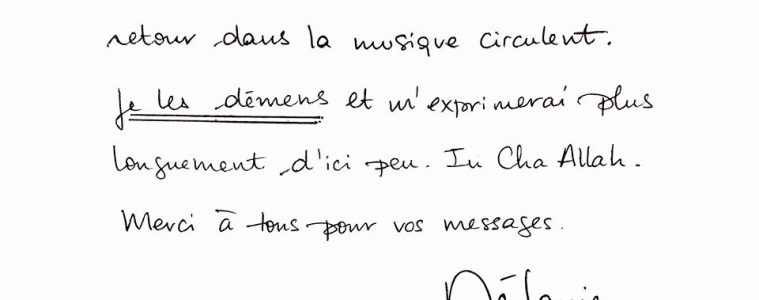 retour dans la musique circulent.
Je les démens et m'exprimerai plus
longuement d'ici peu. In Cha Allah.
Merci à tous pour vos messages.